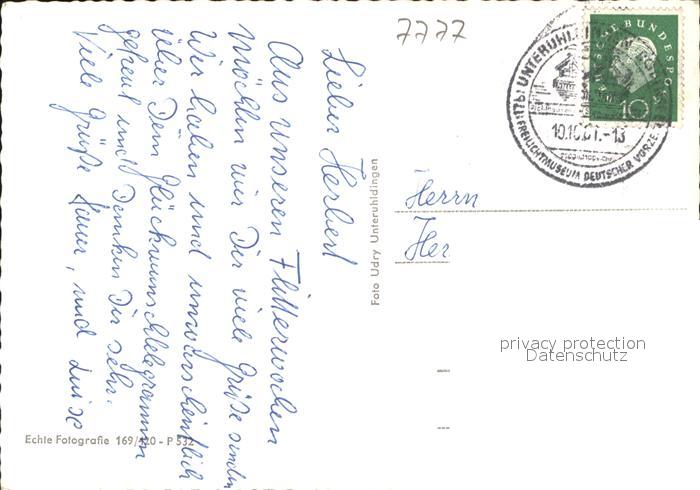 7777
Lieber Herbert
Aus unseren Flitterwochen
möchten wir Dir viele Grüße senden
Wir haben uns unwarscheinlich
über Dein Glückwunschtelegramm
gefreut und Danken Dir sehr.
Viele Grüße und Luise
Foto Udry Unteruhldingen
Echte Fotografie 169/ - P 532
DEUTSCHE BUNDESPOST
10
(17b) UNTERUHLDINGEN
10.10.61.-13
FREILICHTMUSEUM DEUTSCHER VORZEIT
Herrn
Her
privacy protection
Datenschutz